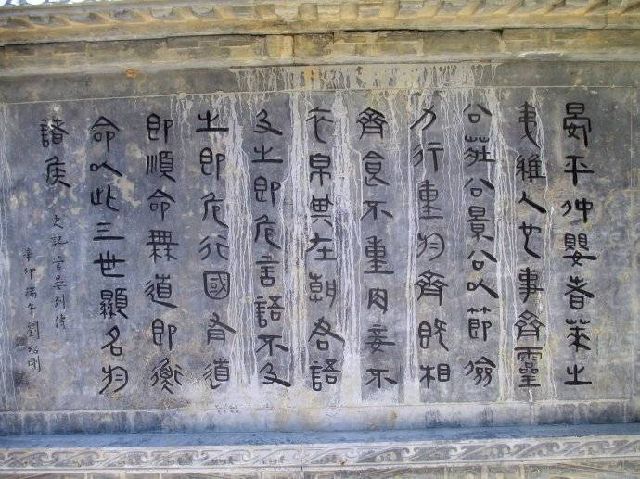 晏平仲嬰者萊之
夷維人也事齊靈
公莊公景公以節儉
力行重於齊既相
齊食不重肉妾不
衣帛其在朝君語
及之即危言語不及
之即危行國有道
即順命無道即衡
命以此三世顯名於
諸侯
史記管晏列傳
辛卯端午劉